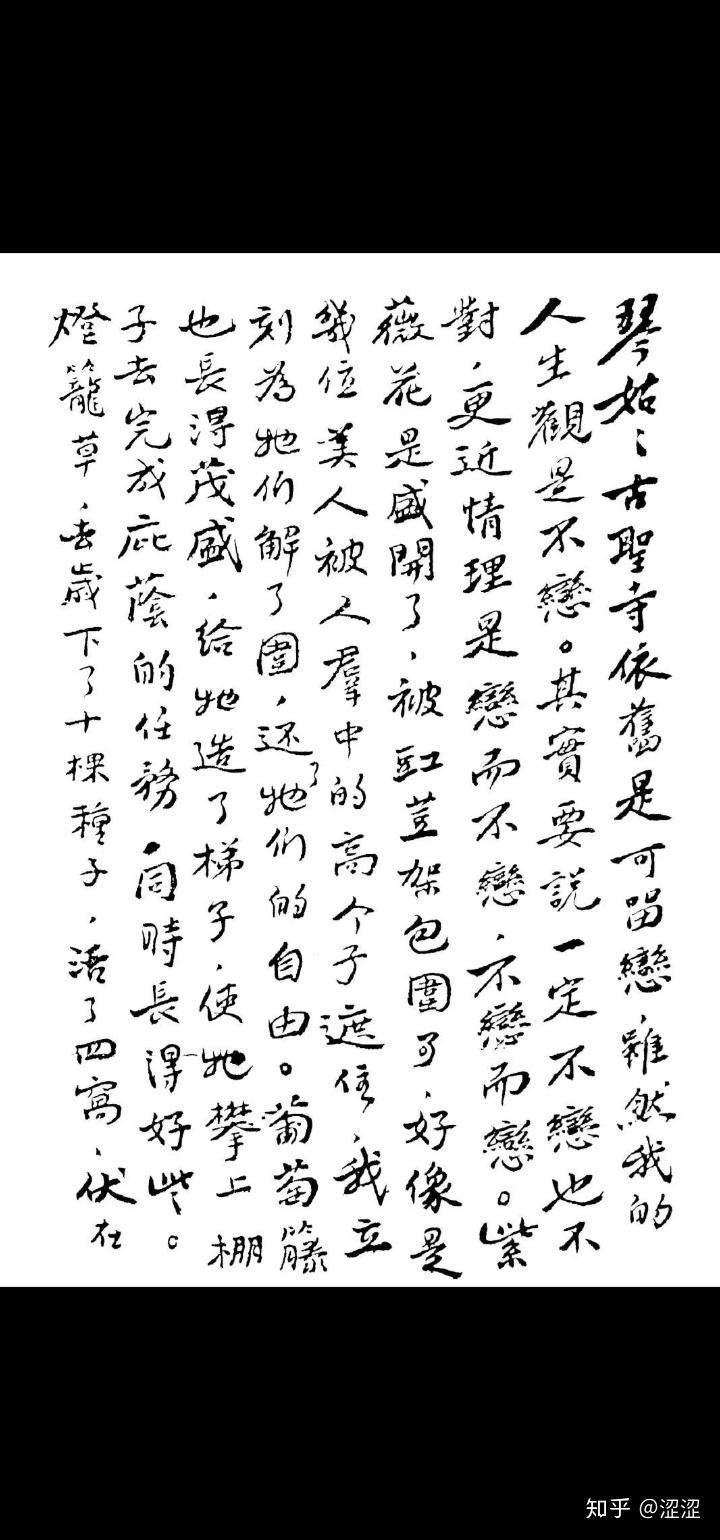 琴姑：古聖寺依舊是可留戀，雖然我的
人生觀是不戀。其實要説一定不戀也不
對，更近情理是戀而不戀，不戀而戀。紫
薇花是盛開了，被豇荳架包圍了，好像是
幾位美人被人羣中的高个子遮住，我立
刻為她們解了圍，还了她們的自由。葡萄籐
也長得茂盛，給她造了梯子，使她攀上棚
子去完成庇蔭的任務，同時長得好些。
燈籠草，去歲下了十棵種子，活了四窩，伏在
知乎 @涩涩